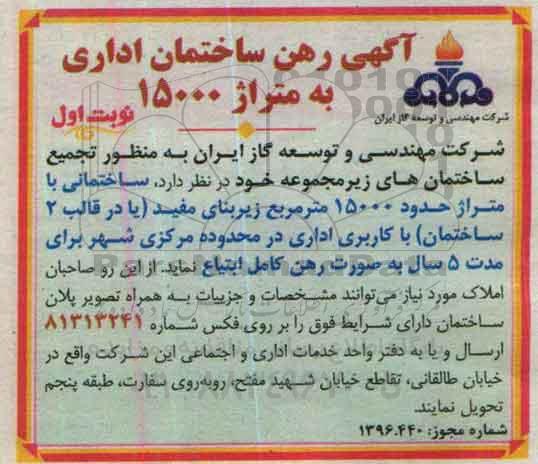 آگهی رهن ساختمان اداری
به متراژ ۱۵۰۰۰
نوبت اول
شرکت مهندسی و توسعه گاز ایران
شرکت مهندسی و توسعه گاز ایران به منظور تجمیع
ساختمان های زیرمجموعه خود در نظر دارد، ساختمانی با
متراژ حدود ۱۵۰۰۰ مترمربع زیربنای مفید (یا در قالب ۲
ساختمان) با کاربری اداری در محدوده مرکزی شهر برای
مدت ۵ سال به صورت رهن کامل ابتیاع نماید. از این رو صاحبان
املاک مورد نیاز می‌توانند مشخصات و جزییات به همراه تصویر پلان
ساختمان دارای شرایط فوق را بر روی فکس شماره ۸۱۳۱۳۲۴۱
ارسال و یا به دفتر واحد خدمات اداری و اجتماعی این شرکت واقع در
خیابان طالقانی، تقاطع خیابان شهید مفتح، روبه‌روی سفارت، طبقه پنجم
تحویل نمایند.
شماره مجوز: ۱۳۹۶.۴۴۰